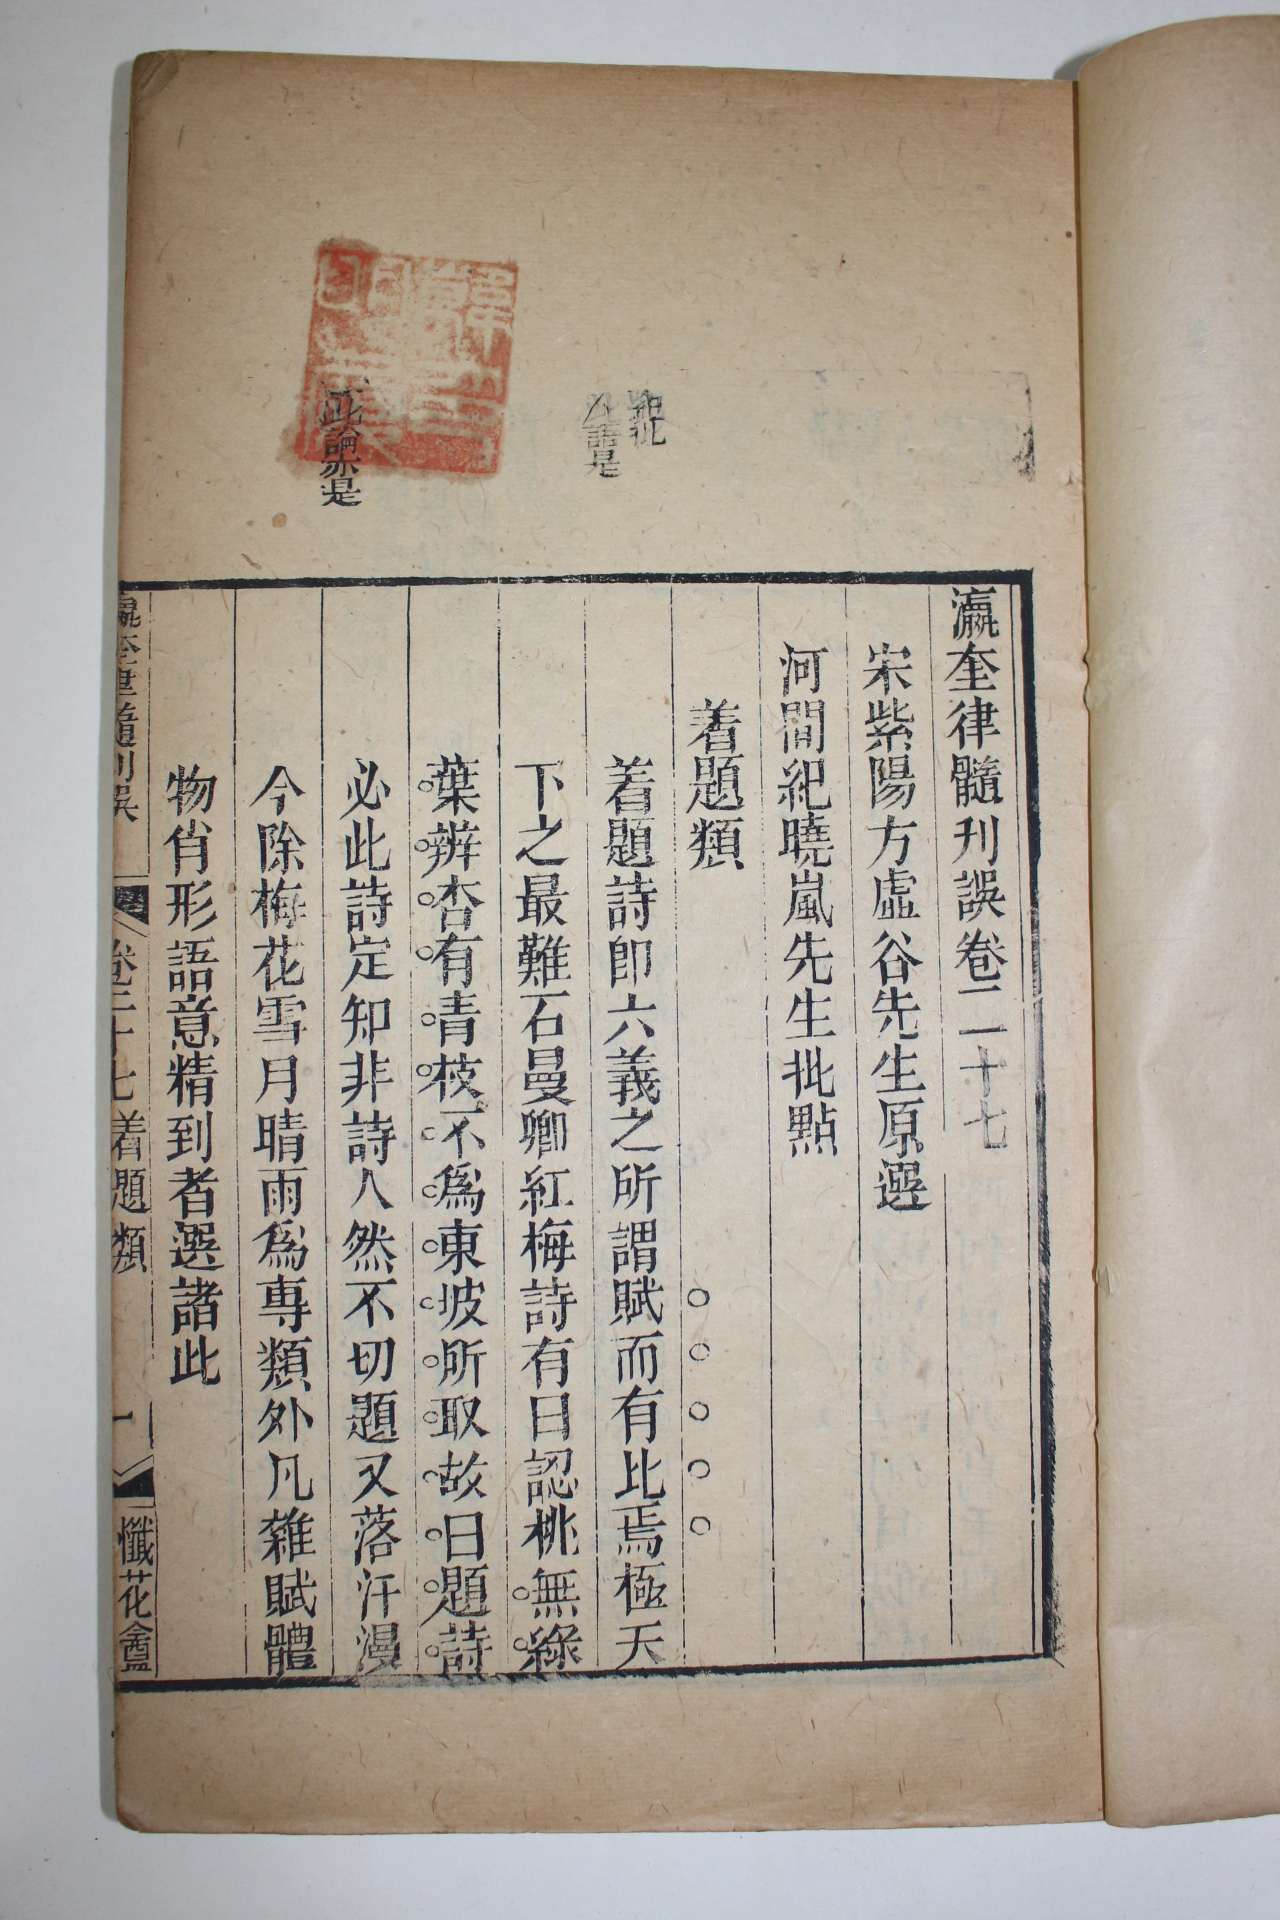 瀛奎律髓刊誤卷二十七
宋紫陽方虛谷先生原選
河間紀曉嵐先生批點
着題類
着題詩即六義之所謂賦而有比焉極天
下之最難石曼卿紅梅詩有曰認桃無綠
葉辨杏有青枝不為東坡所取故曰題詩
必此詩定知非詩人然不切題又落汗漫
今除梅花雪月晴雨為專類外凡雜賦體
物肖形語意精到者選諸此
瀛奎律髓刊誤
卷二十七着題類
一
懺花盦
紀批
此語是
此論亦是